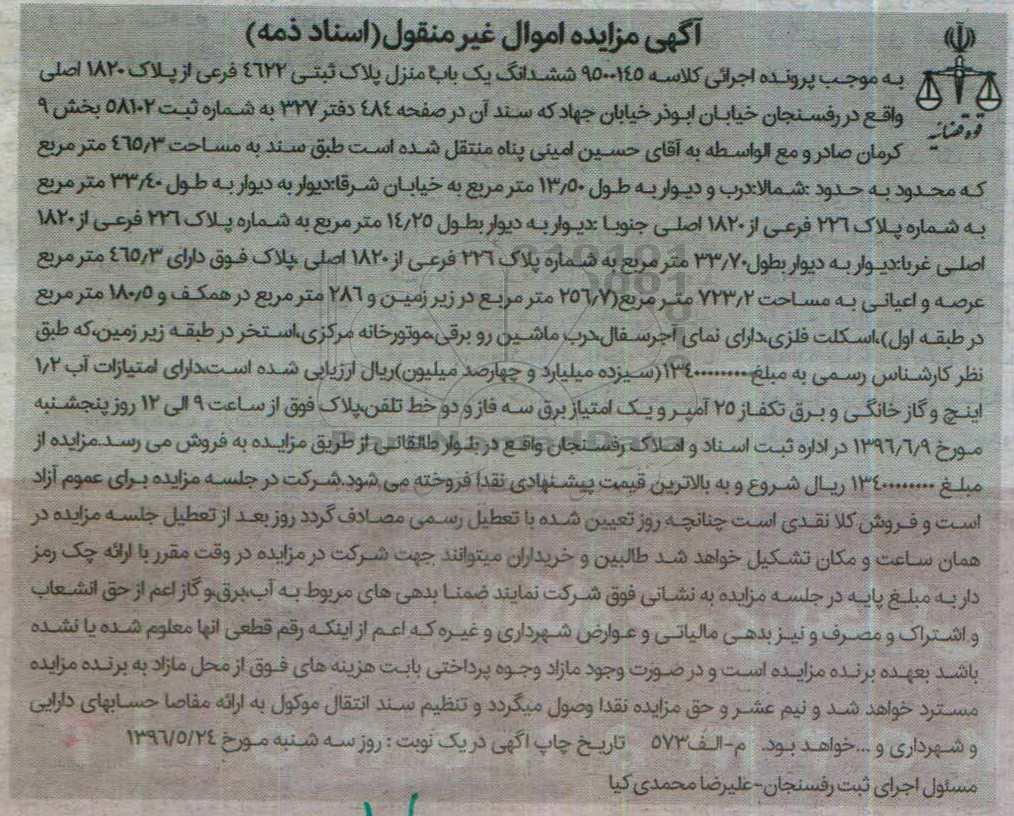 آگهی مزایده اموال غیر منقول(اسناد ذمه)
قوه قضائیه
به موجب پرونده اجرائی کلاسه ۹۵۰۰۱۴۵ ششدانگ یک باب منزل پلاک ثبتی ٤٦۲۲ فرعی از پلاک ۱۸۲۰ اصلی
واقع در رفسنجان خیابان ابوذر خیابان جهاد که سند آن در صفحه ٤۸٤ دفتر ۳۲۷ به شماره ثبت ۵۸۱۰۲ بخش ۹
کرمان صادر و مع الواسطه به آقای حسین امینی پناه منتقل شده است طبق سند به مساحت ٤٦۵٫۳ متر مربع
که محدود به حدود :شمالا:درب و دیوار به طول ۱۳٫۵۰ متر مربع به خیابان شرقا:دیوار به دیوار به طول ۳۳٫٤۰ متر مربع
به شماره پلاک ۲۲٦ فرعی از ۱۸۲۰ اصلی جنوبا :دیوار به دیوار بطول ۱٤٫۲۵ متر مربع به شماره پلاک ۲۲٦ فرعی از ۱۸۲۰
اصلی غربا:دیوار به دیوار بطول ۳۳٫۷۰ متر مربع به شماره پلاک ۲۲٦ فرعی از ۱۸۲۰ اصلی ،پلاک فوق دارای ٤٦۵٫۳ متر مربع
عرصه و اعیانی به مساحت ۷۲۳٫۲ متر مربع(۲۵٦٫۷ متر مربع در زیر زمین و ۲۸٦ متر مربع در همکف و ۱۸۰٫۵ متر مربع
در طبقه اول)،اسکلت فلزی،دارای نمای آجرسفال،درب ماشین رو برقی،موتورخانه مرکزی،استخر در طبقه زیر زمین،که طبق
نظر کارشناس رسمی به مبلغ ۱۳٤۰۰۰۰۰۰۰۰(سیزده میلیارد و چهارصد میلیون)ریال ارزیابی شده است،دارای امتیازات آب ۱٫۲
اینچ و گاز خانگی و برق تکفاز ۲۵ آمپر و یک امتیاز برق سه فاز و دو خط تلفن،پلاک فوق از ساعت ۹ الی ۱۲ روز پنجشنبه
مورخ ۱۳۹٦/٦/۹ در اداره ثبت اسناد و املاک رفسنجان واقع در بلوار طالقانی از طریق مزایده به فروش می رسد.مزایده از
مبلغ ۱۳٤۰۰۰۰۰۰۰۰ ریال شروع و به بالاترین قیمت پیشنهادی نقدا فروخته می شود.شرکت در جلسه مزایده برای عموم آزاد
است و فروش کلا نقدی است چنانچه روز تعیین شده با تعطیل رسمی مصادف گردد روز بعد از تعطیل جلسه مزایده در
همان ساعت و مکان تشکیل خواهد شد طالبین و خریداران میتوانند جهت شرکت در مزایده در وقت مقرر با ارائه چک رمز
دار به مبلغ پایه در جلسه مزایده به نشانی فوق شرکت نمایند ضمنا بدهی های مربوط به آب،برق،و گاز اعم از حق انشعاب
و اشتراک و مصرف و نیز بدهی مالیاتی و عوارض شهرداری و غیره که اعم از اینکه رقم قطعی انها معلوم شده یا نشده
باشد بعهده برنده مزایده است و در صورت وجود مازاد وجوه پرداختی بابت هزینه های فوق از محل مازاد به برنده مزایده
مسترد خواهد شد و نیم عشر و حق مزایده نقدا وصول میگردد و تنظیم سند انتقال موکول به ارائه مفاصا حسابهای دارایی
و شهرداری و ...خواهد بود. م-الف۵۷۳ تاریخ چاپ آگهی در یک نوبت : روز سه شنبه مورخ ۱۳۹٦/۵/۲٤
مسئول اجرای ثبت رفسنجان-علیرضا محمدی کیا